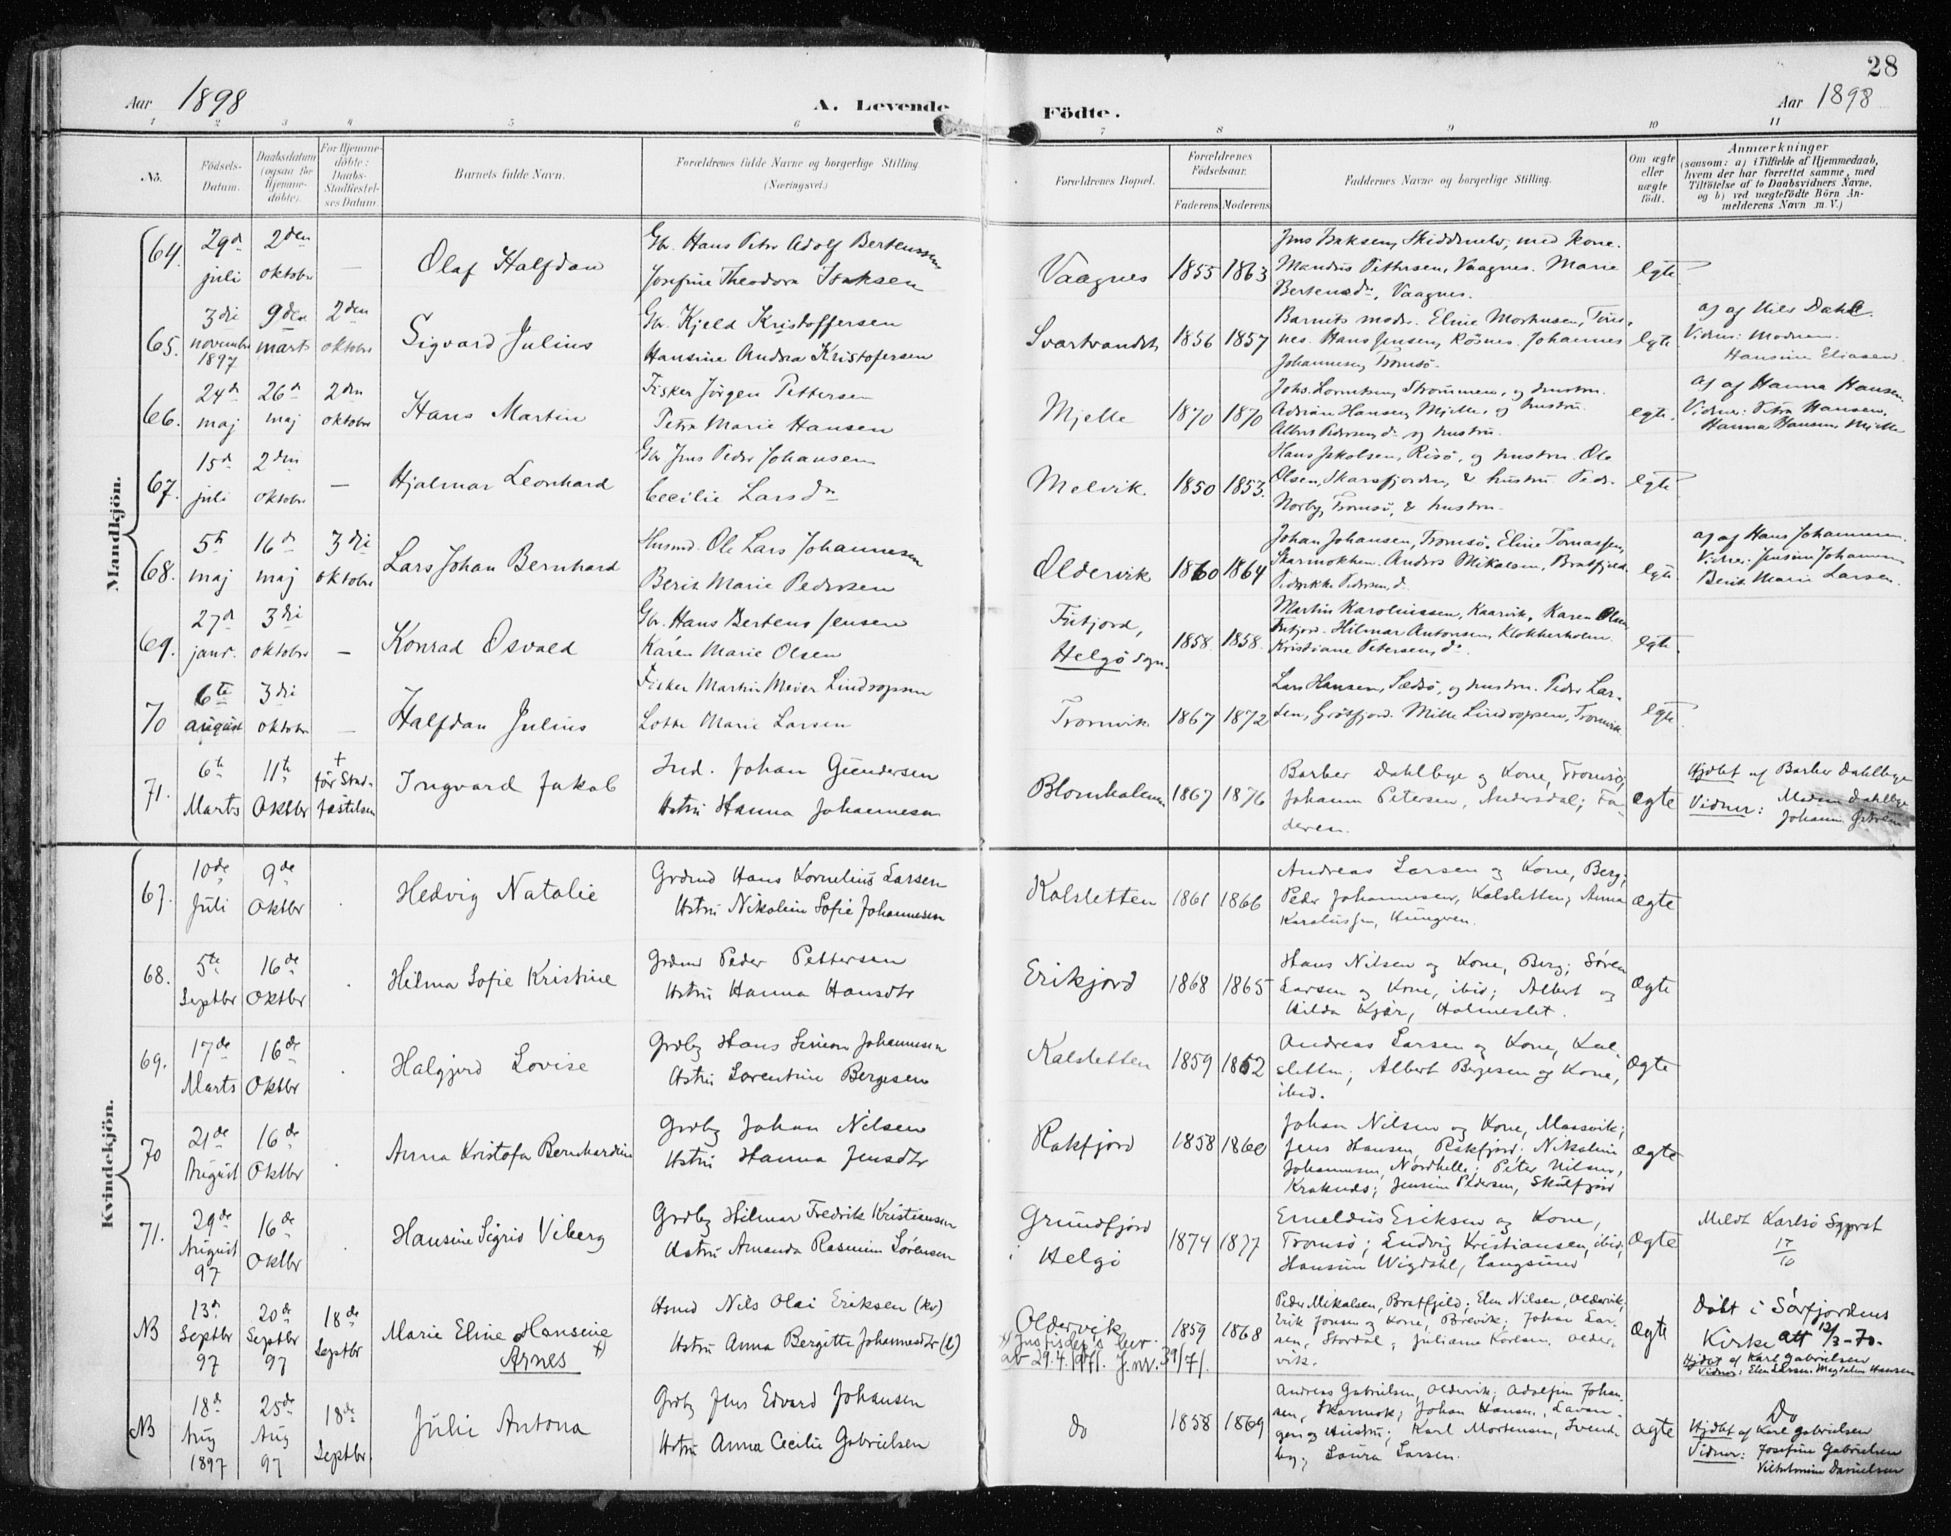 28
Aar 1898
A. Levende Födte.
Aar 1898
1 2 3 4 5 6 7 8 9 10 11
No.
Födsels-Datum.
Daabsdatum (ogsaa for Hjemmedöbte).
For Hjemmedöbte: Daabs-Stadfæstelses Datum
Barnets fulde Navn.
Forældrenes fulde Navne og borgerlige Stilling (Næringsvei.)
Forældrenes Bopæl.
Forældrenes Födselsaar.
Faderens Moderens
Faddernes Navne og borgerlige Stilling.
Om ægte eller uægte födt.
Anmærkninger
(saasom: a) i Tilfælde af Hjemmedaab,
hvem der har forrettet samme, med
Tilföielse af to Daabsvidners Navne,
og b) ved uægtefödte Börn Anmelderens Navn m. V.)
Mandkjön.
64. 29d juli 2den oktober — Olaf Halfdan
Gbr. Hans Peter Adolf Bertenssen
Josefine Theodora Isaksen
Vaagnes 1855 1863
Jens Isaksen, Skiddenelv, med kone.
Mandus Pettersen, Vaagnes. Marie
Bertensdn, Vaagnes.
ægte
65. 3die november 1897 9den marts 2den oktober Sigvard Julius
Gbr. Kjeld Kristoffersen
Hansine Andrea Kristofersen
Svartvandet 1856 1857
Barnets moder. Eline Mortensen, Tøns-
nes. Hans Jensen, Røsnes. Johannes
Johannesen, Tromsø.
ægte
Vidner: Moderen
Hansine Eliasen.
66. 24d maj 26d maj 2den oktober Hans Martin
Fisker Jørgen Pettersen
Petra Marie Hansen
Mjelle 1870 1870
Johs. Lorentsen, Strømmen, og hustru.
Adrian Hansen, Mjelle, og hustru.
Albert Pedersen, do og hustru.
ægte.
af Hanna Hansen
Vidner: Petra Hansen,
Hanna Hansen, Mjelle
67. 15d juli 2den oktober — Hjalmar Leonhard
Gbr Jens Peder Johansen
Cecilie Larsdn
Melvik. 1850 1853.
Hans Jakobsen, Risø, og hustru. Ole
Olsen, Skarsfjorden, & hustru. Peder
Norby, Tromsø, & hustru.
ægte
68. 5te maj 16d maj 3die oktober Lars Johan Bernhard
Husmd. Ole Lars Johannesen
Berit Marie Pedersen
Oldervik 1860 1864
Johan Johansen, Tromsø. Eline Tomassen,
Skarmokken. Anders Mikalsen, Bratfjeld
ægte
af Hans Johannesen.
Vidner: Jensine Johannesen
Berit Marie Larsen.
69. 27d janr. 3die oktober — Konrad Osvald
Gbr. Hans Bertens Jensen
Karen Marie Olsen
Futfjord,
Helgø sogn. 1858. 1858.
Martin Karolinssen, Kaarvik, Karen Olsen
Futfjord. Hilmar Antonsen, Klokkerholm.
Kristiane Petersen, do.
ægte.
70 6te august 3die oktober — Halfdan Julius
Fisker Martin Meier Lindrupsen
Lotte Marie Larsen
Tromvik 1867 1872
Lars Hansen, Sædsø, og hustru. Peder Lar-
sen, Grøtfjord. Mille Lindrupsen, Tromvik
ægte.
71. 6te Marts 11te Oktbr + før Stad-fæstelsen Ingvard Jakob
Ind. Johan Gundersen
Hstru Hanna Johannesen
Blomholmen 1867 1876
Barber Dahlbye og Kone, Tromsø;
Johann Petersen, Andersdal; Fa-
deren.
ægte
Hjdbt af Barber Dahlbye
Vidner: Madam Dahlbye
Kvindekjön.
67. 10de Juli 9de Oktbr Hedvig Natalie
Grdmd Hans Kornelius Larsen
Hstru Nikoline Sofie Johannesen
Kalsletten 1861 1866
Andreas Larsen og Kone, Berg;
Peder Johannesen, Kalsletten; Anna
ægte
68. 5te Septbr 16de Oktbr Hilma Sofie Kristine
Grdmd Peder Pettersen
Hstru Hanna Hansdtr
Erikjord 1868 1865
Hans Nilsen og Kone, Berg; Søren
Larsen og Kone, ibid; Albert og
Hilda Kjær, Holmeslet.
ægte
69. 17de Marts 16de Oktbr Halgjerd Lovise
Grdbg Hans Simon Johannesen
Hstru Lorentine Bergesen
Kalsletten 1859 1862
Andreas Larsen og Kone, Kal-
sletten; Albert Bergesen og Kone,
ibid.
ægte
70 21de August 16de Oktbr Anna Kristofa Bernhardine
Grdbg Johan Nilsen
Hstru Hanna Jensdtr
Rakfjord 1858 1860
Johan Nilsen og Kone, Maasvik;
Jens Hansen, Rakfjord; Nikoline
Johannesen, Nordhelle; Peter Nilsen,
Kraknes; Jensine Pedersen, Skulfjord
ægte
71. 29de August 97 16de Oktbr Hansine Sigrid Viberg
Grdbg Hilmar Fredrik Kristiansen
Hstru Amanda Rasmine Sørensen
Grundfjord
i Helgø 1874 1877
Emeldius Eriksen og Kone,
Tromsø; Ludvig Kristiansen, ibid;
Hansine Wigdahl, Langsund
ægte
Meldt Karlsø Sgprst
17/10
NB 13de Septbr 97 20de Septbr 97 18de Septbr Marie Eline Hansine x)
Arnes
Hsmd Nils Olai Eriksen (kv)
Hstru Anna Bergitte Johannesdtr (l)
Oldervik 1859 1868
x) Justisdep's bev.
av 29.4.1971. J.nr. 39/71.
Peder Mikalsen, Bratfjeld; Elen Nilsen, Oldervik;
Erik Jonsen og Kone, Breivik; Johan Lar-
sen, Stordal; Juliane Karlsen, Older-
vik.
ægte
Døbt i Sørfjordens
Kirke att 12/3-70.
Hjdbt af Karl Gabrielsen
Vidner: Elen Larsen. Magdalene Hansen
NB 18de Aug 1897 25de Aug 97 18de Septbr Julie Antona
Grdbg Jens Edvard Johansen
Hstru Anna Cecilie Gabrielsen
do 1858 1869
Andreas Gabrielsen, Oldervik; Adolfine Johan-
sen, Skarmok; Johan Hansen, Lavan-
gen og Hustru; Karl Mortensen, Svend-
by; Laura Larsen.
ægte
Do
Hjdbt af Karl Gabrielsen
Vidner: Josefine Gabrielsen
Vilhelmine Danielsen